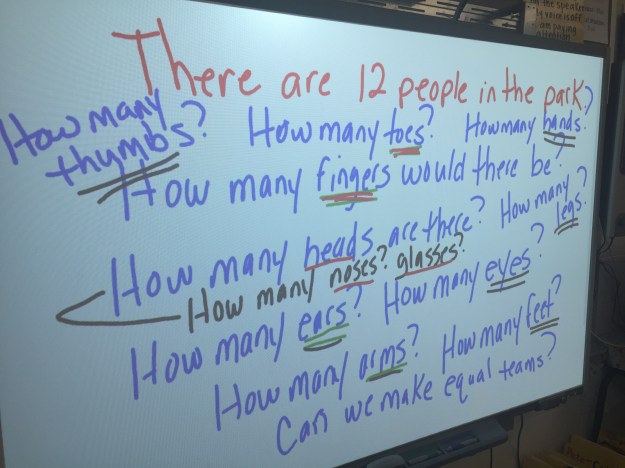 There are 12 people in the park.
How many thumbs?
How many toes?
How many hands?
How many fingers would there be?
How many heads are there?
How many legs?
How many noses? glasses?
How many ears?
How many eyes?
How many arms?
How many feet?
Can we make equal teams?